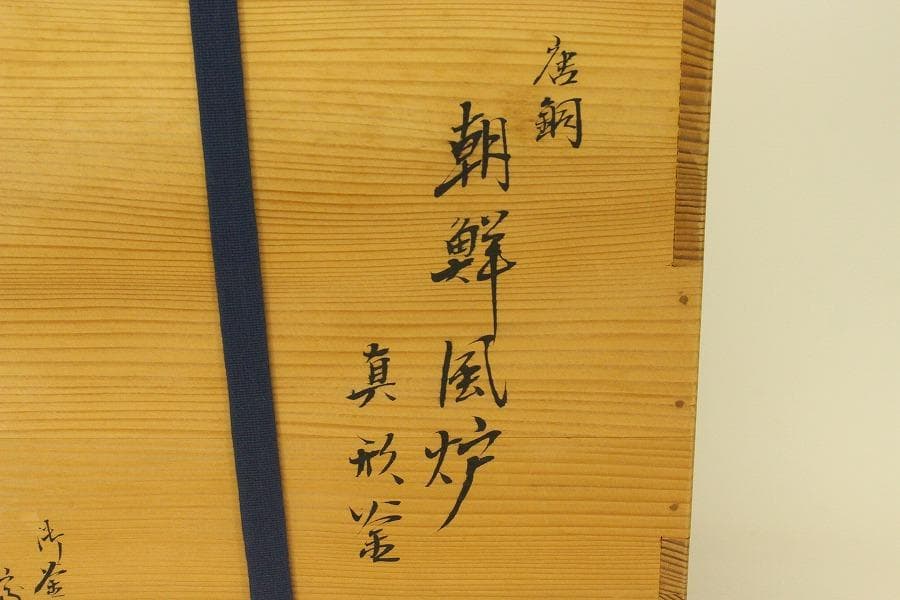 唐銅
朝鮮風炉
真形釜
御釜